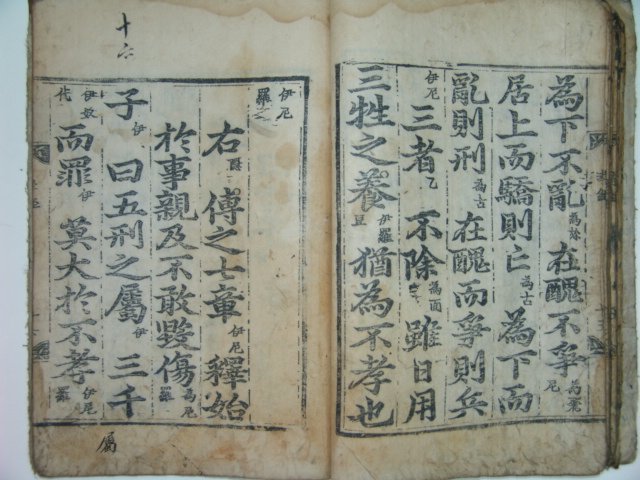 為下不亂為㫆在醜不爭為㫆尼
居上而驕則亡為古為下而
亂則刑為古在醜而爭則兵
伊尼三者乙不除為面雖日用
三牲之養豆伊羅猶為不孝也
伊尼羅
右傅之七章伊尼釋始
於事親及不敢毀傷為尼羅
子伊曰五刑之屬伊三千
伊代而罪伊莫大於不孝伊尼羅
十六
屬